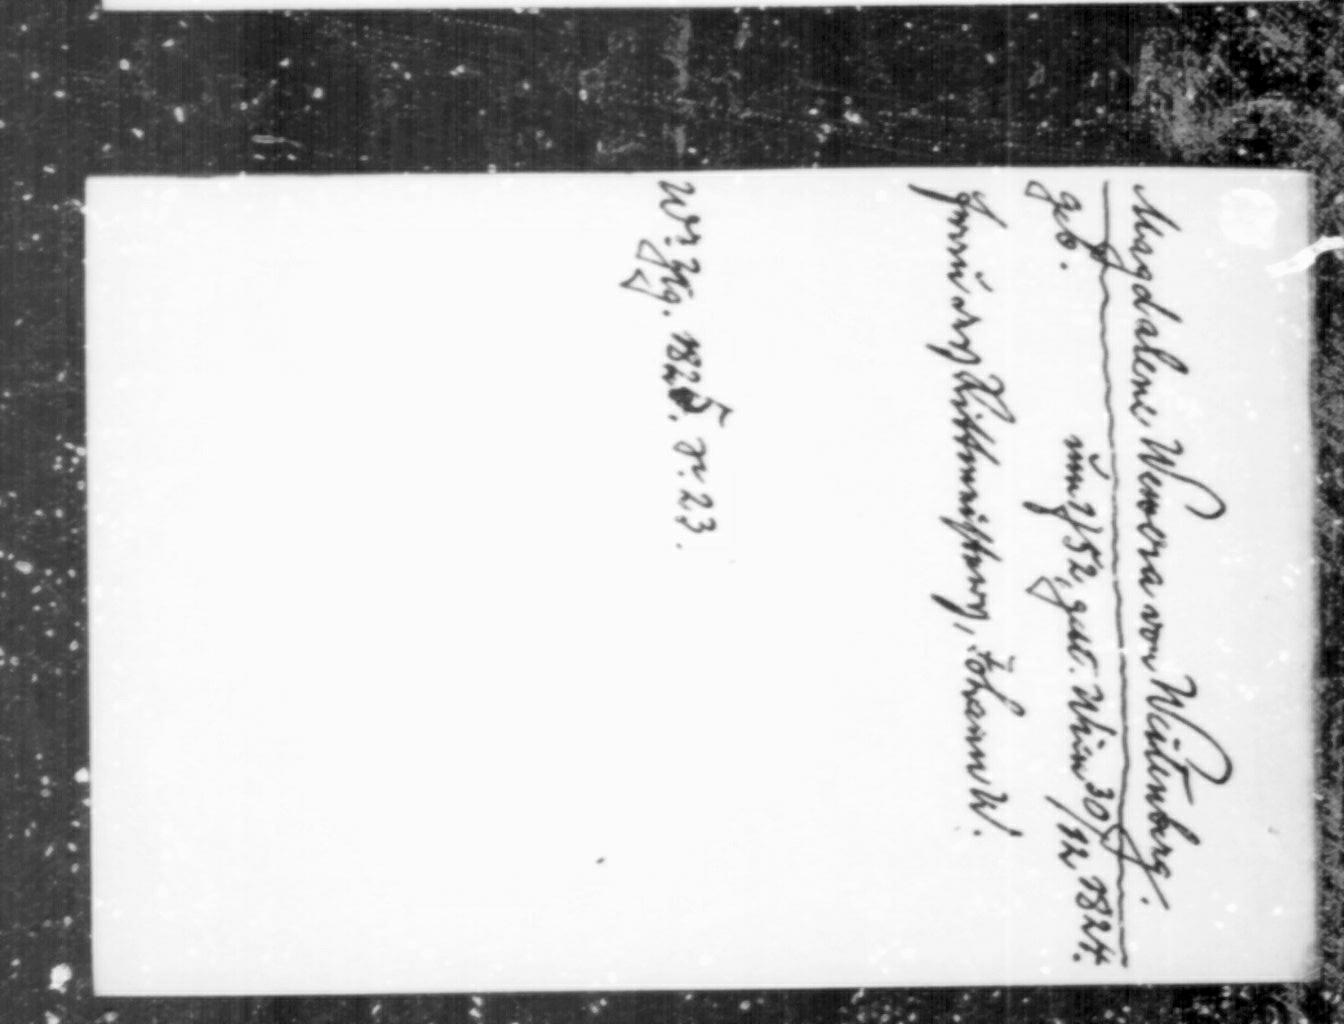 Magdalene Wewera von Weitenberg.
geb. um 1752, gest. Wien 30/12 1824.
Frau des Rittmeisters, Johann W.
Wr. Ztg. 1825. N. 23.